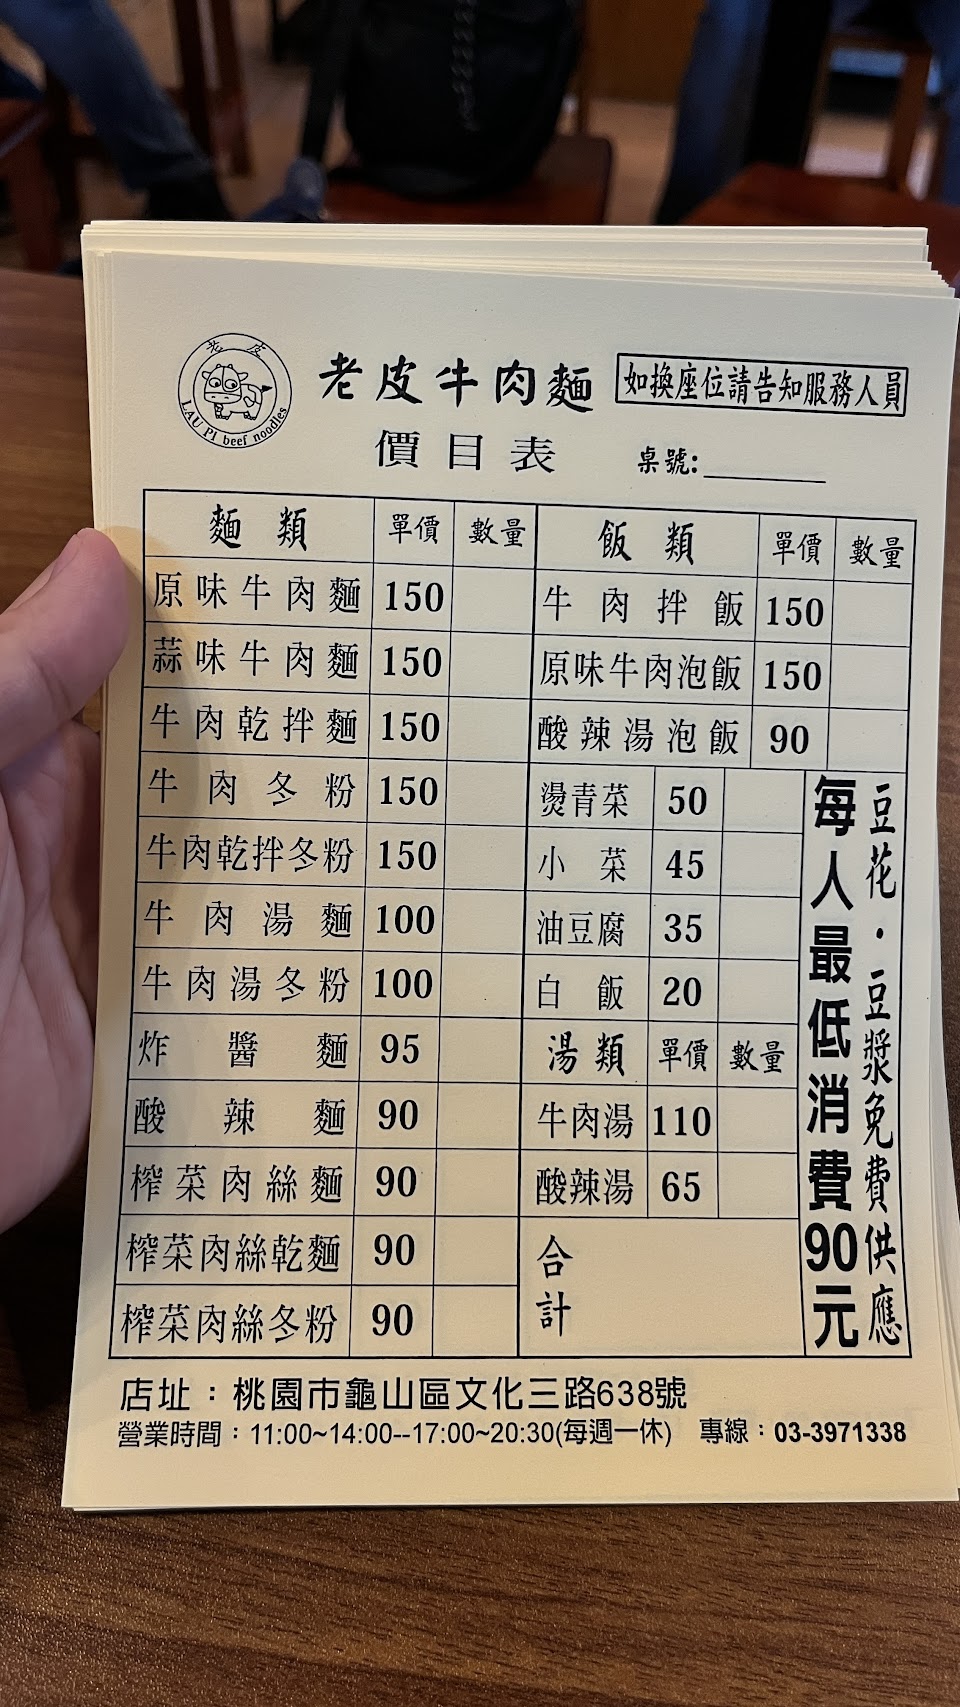 老皮
LAU PI beef noodles
老皮牛肉麵
如換座位請告知服務人員
價目表
桌號:
麵類 單價 數量
原味牛肉麵 150
蒜味牛肉麵 150
牛肉乾拌麵 150
牛肉冬粉 150
牛肉乾拌冬粉 150
牛肉湯麵 100
牛肉湯冬粉 100
炸醬麵 95
酸辣麵 90
榨菜肉絲麵 90
榨菜肉絲乾麵 90
榨菜肉絲冬粉 90
飯類 單價 數量
牛肉拌飯 150
原味牛肉泡飯 150
酸辣湯泡飯 90
燙青菜 50
小菜 45
油豆腐 35
白飯 20
湯類 單價 數量
牛肉湯 110
酸辣湯 65
合計
豆花·豆漿免費供應
每人最低消費90元
店址：桃園市龜山區文化三路638號
營業時間：11:00~14:00--17:00~20:30(每週一休) 專線：03-3971338